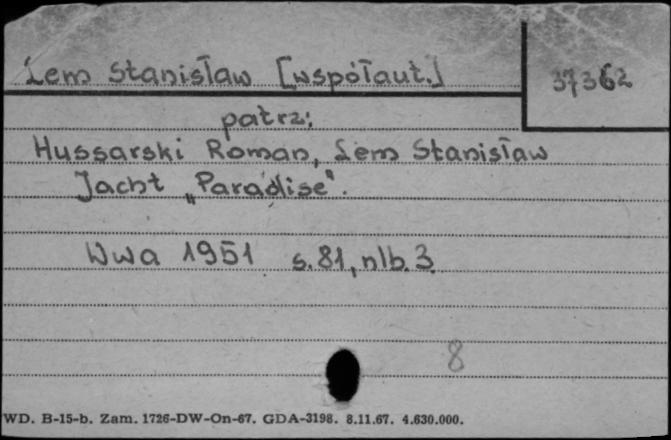 Lem Stanisław [współaut.]
37362
patrz:
Hussarski Roman, Lem Stanisław
Jacht „Paradise".
Wwa 1951 s. 81, nlb. 3
8
WD. B-15-b. Zam. 1726-DW-On-67. GDA-3198. 8.11.67. 4.630.000.